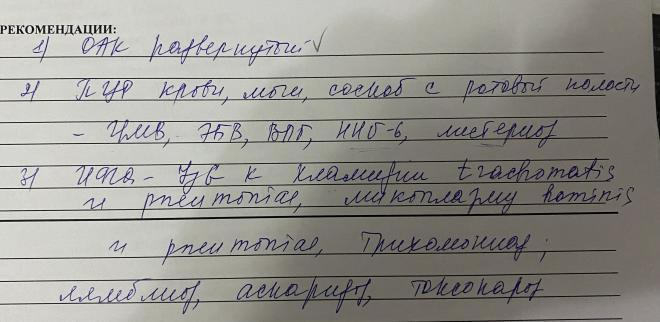 РЕКОМЕНДАЦИИ:
1) ОАК развернутый √
2) ПЦР крови, мочи, соскоб с ротовый полости
- ЦМВ, ЭБВ, ВПГ, листериоз
3) ИФА - Jg G к хламидии trachomatis
и pneumoniae, микоплазму hominis
и pneumoniae, Трихомониаз;
лямблиоз, аскаридоз, токсокароз